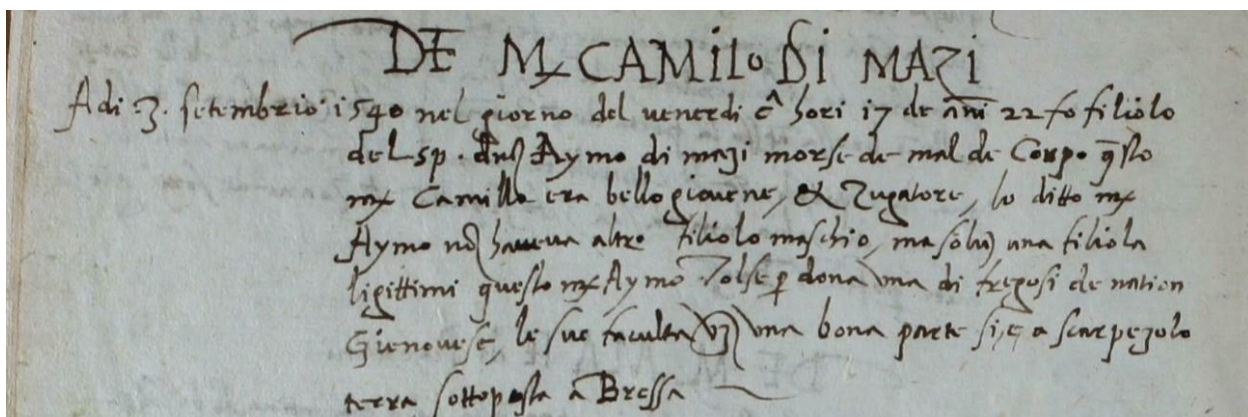 DE Mx CAMILO DI MAZI
Adi .3. setembrio 1540 nel giorno del venerdi cᵃ hori 17 de ani 22 fo filiolo
del sp. dn̄s Aymo di mazi morse de mal de Corpo q̄sto
mx Camillo era bello giovene, & Zugatore, lo ditto mx
Aymo nō haveva altro filiolo maschio, ma solū una filiola
ligittimi questo mx Aymo Tolse ꝑ dona una di fregosi de nation
Gienovese, le sue faculta una bona parte si, e, a scarpezolo
terra sottoposta a Bressa